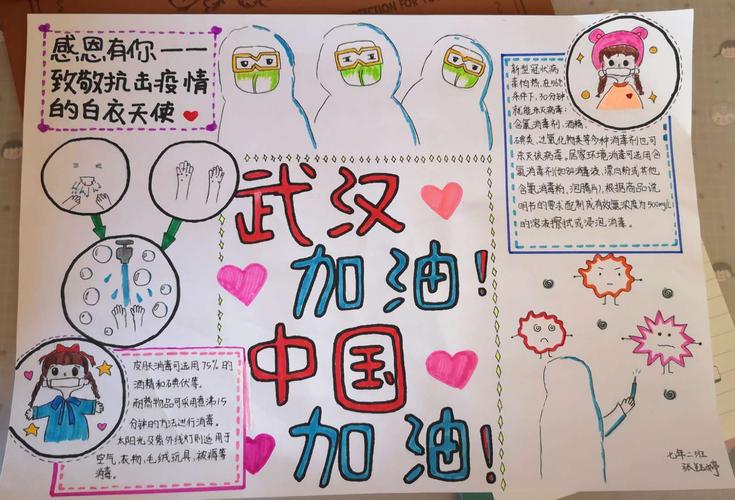 感恩有你——
致敬抗击疫情
的白衣天使
武汉
加油!
中国
加油!
新型冠状病
毒怕热,在56℃
条件下,30分钟
就能杀灭病毒;
含氯消毒剂,酒精,
碘类、过氧化物类等多种消毒剂也可
杀灭该病毒。居家环境消毒可选用含
氯消毒剂(如84消毒液、漂白粉或其他
含氯消毒粉、泡腾片),根据商品说
明书的要求配制成有效氯浓度为500mg/L
的溶液擦拭或浸泡消毒。
皮肤消毒可选用75%的
酒精和碘伏等。
耐热物品可采用煮沸15
分钟的方法进行消毒。
太阳光及紫外线灯则适用于
空气、衣物、毛绒玩具、被褥等
消毒。
七年二班
张婷